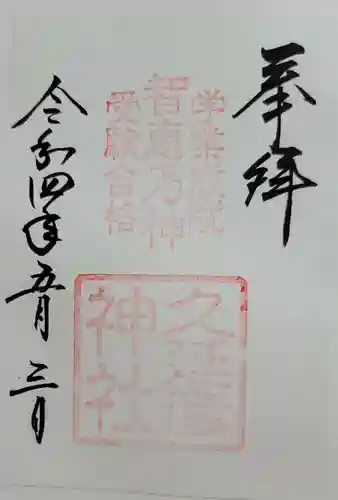 奉拝
学業成就
智恵乃神
受験合格
久延彦
神社
令和四年五月三日